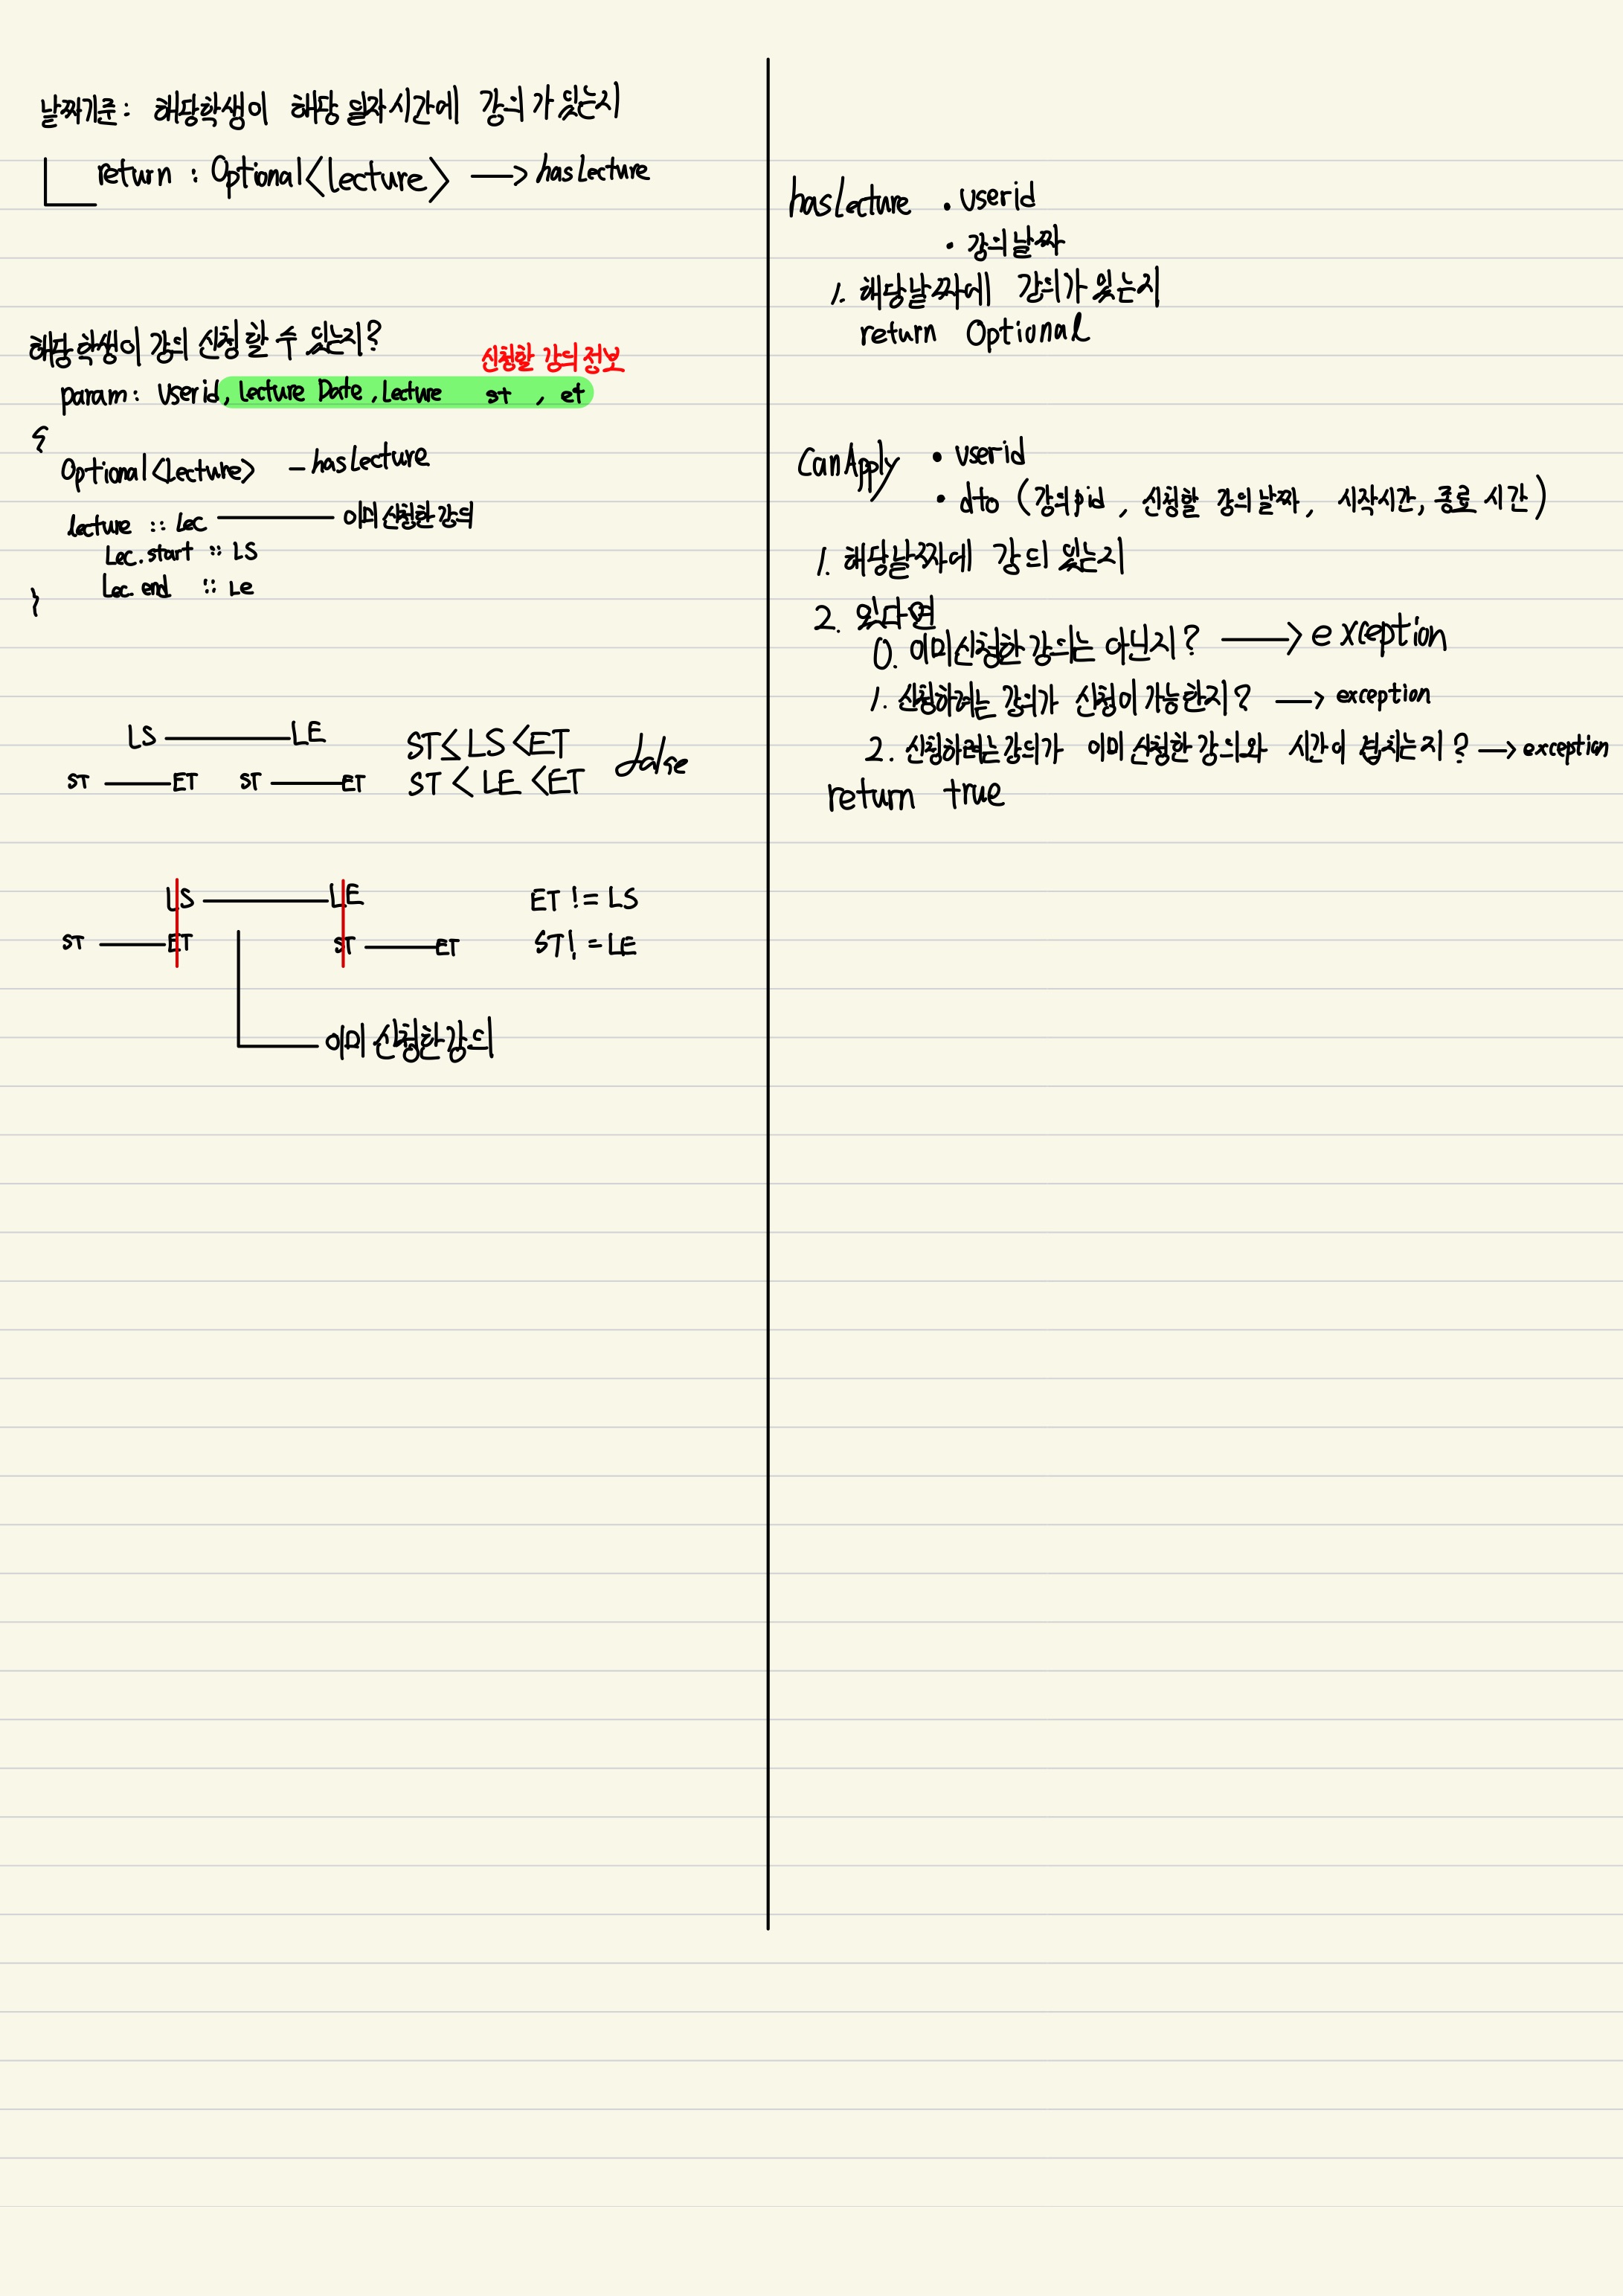 날짜기준: 해당학생이 해당 일자시간에 강의가 있는지
return : Optional<lecture> → hasLecture
해당 학생이 강의 신청 할 수 있는지?
신청할 강의 정보
param: userid, Lecture Date, Lecture st , et
{
Optional<Lecture> - hasLecture
lecture :: Lec 이미 신청한 강의
Lec.start :: LS
Lec.end :: Le
}
LS LE
ST ET ST ET
ST ≤ LS < ET
ST < LE < ET
false
LS LE
ST ET ST ET
ET != LS
ST! = LE
이미 신청한 강의
hasLecture • userid
• 강의 날짜
1. 해당 날짜에 강의가 있는지
return Optional
CanApply • userid
• dto (강의pid, 신청할 강의 날짜, 시작시간, 종료 시간)
1. 해당날짜에 강의 있는지
2. 있다면
0. 이미신청한 강의는 아닌지? → exception
1. 신청하려는 강의가 신청이 가능한지? → exception
2. 신청하려는강의가 이미 신청한 강의와 시간이 겹치는지? → exception
return true